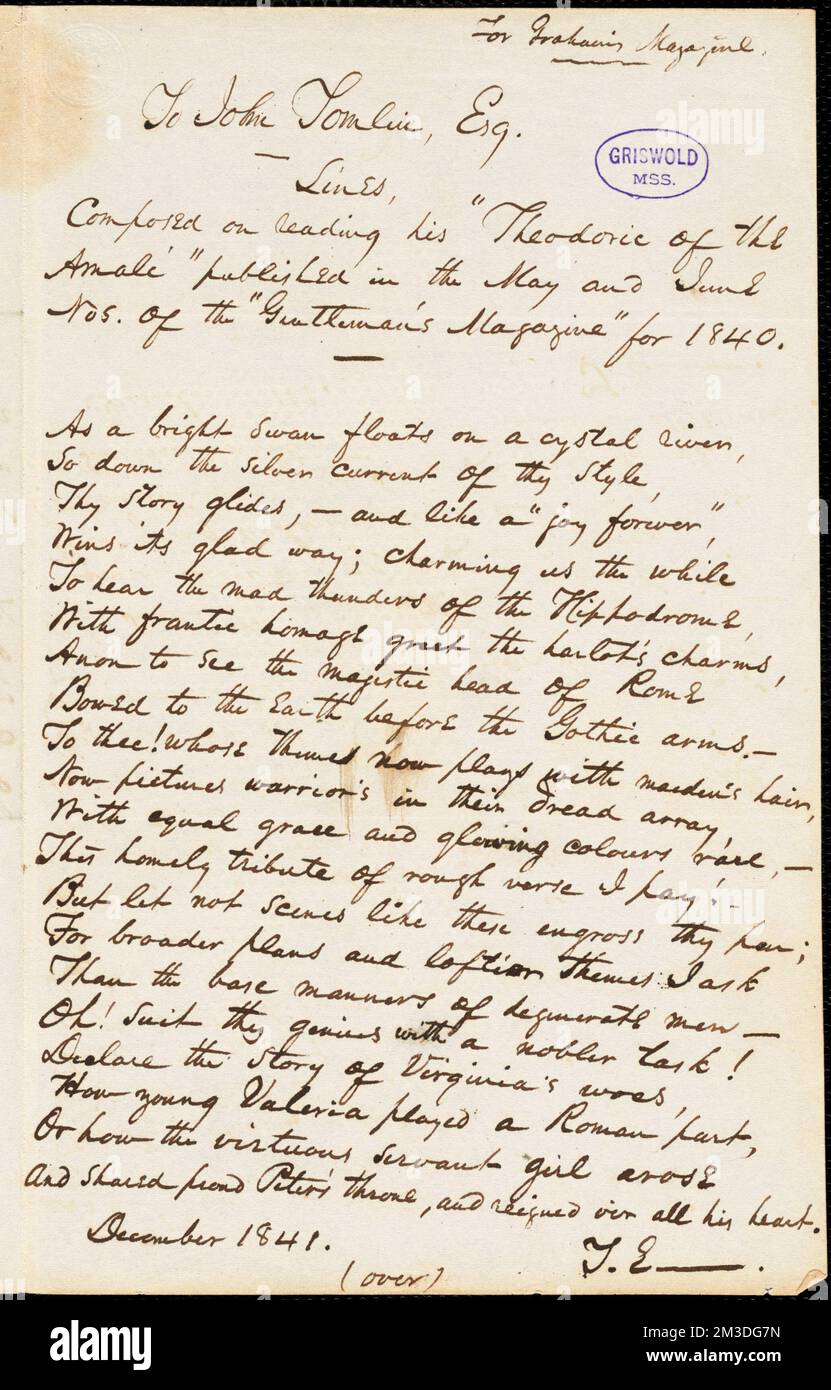 For Graham's Magazine.
To John Tomlin, Esq.
GRISWOLD
MSS.
Lines,
Composed on reading his "Theodoric of the
Amali" published in the May and June
Nos. of the "Gentleman's Magazine" for 1840.
As a bright swan floats on a cystal river,
So down the silver current of thy style,
Thy story glides, – and like a "joy forever",
Wins its glad way; charming us the while
To hear the mad thunders of the Hippodrome,
With frantic homage greet the harlot's charms,
Anon to see the majestic head of Rome
Bowed to the Earth before the Gothic arms. –
To thee! whose themes now plays with maiden's hair,
Now pictures warrior's in their dread array,
With equal grace and glowing colours rare, –
This homely tribute of rough verse I pay! –
But let not scenes like these engross thy pen;
For broader plans and loftier themes I ask
Than the base manners of degenerate men –
Oh! Suit thy genius with a nobler task!
Declare the story of Virginia's woes,
How young Valeria played a Roman part,
Or how the virtuous servant girl arose
And shared proud Peter's throne, and reigned o'er all his heart.
December 1841.
T. E——.
(over)
alamy
Image ID: 2M3DG7N
www.alamy.com